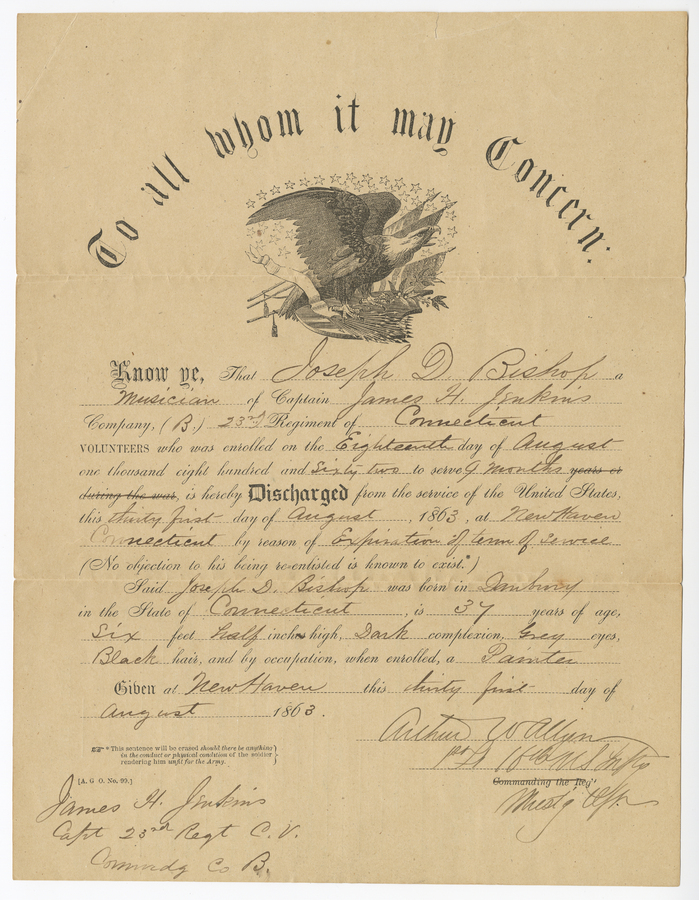 To all whom it may Concern:
Know ye, That Joseph D. Bishop a
Musician of Captain James H. Jenkins
Company, (B.) 23rd Regiment of Connecticut
VOLUNTEERS who was enrolled on the Eighteenth day of August
one thousand eight hundred and Sixty two to serve 9 months years or
during the war, is hereby Discharged from the service of the United States,
this thirty first day of August, 1863, at New Haven
Connecticut by reason of Expiration of term of service
(No objection to his being re-enlisted is known to exist.*)
Said Joseph D. Bishop was born in Danbury
in the State of Connecticut, is 37 years of age,
Six feet half inches high, Dark complexion, Grey eyes,
Black hair, and by occupation, when enrolled, a Painter
Given at New Haven this thirty first day of
August 1863.
Arthur W Allyn
1st Lt 16th U S Infty
☞ * This sentence will be erased should there be anything
in the conduct or physical condition of the soldier
rendering him unfit for the Army.
[A. G. O. No. 99.]
Commanding the Reg't
Must'g Off.
James H. Jenkins
Capt 23rd Regt C. V.
Commdg Co B.